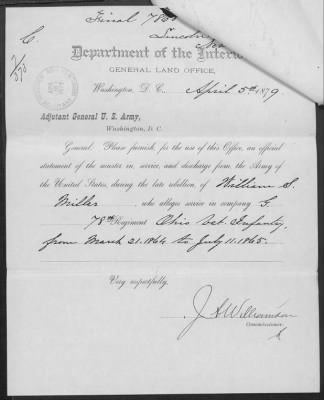 C.
Final 785
Lincoln
Department of the Interi
GENERAL LAND OFFICE,
Washington, D. C., April 5th 1879
Adjutant General U. S. Army,
Washington, D. C.
General: Please furnish, for the use of this Office, an official
statement of the muster in, service, and discharge from the Army of
the United States, during the late rebellion, of William S.
Miller who alleges service in company G.
78th Regiment Ohio Vet. Infantry,
from March 21. 1864 to July 11. 1865.
Very respectfully,
J A Williamson
Commissioner.